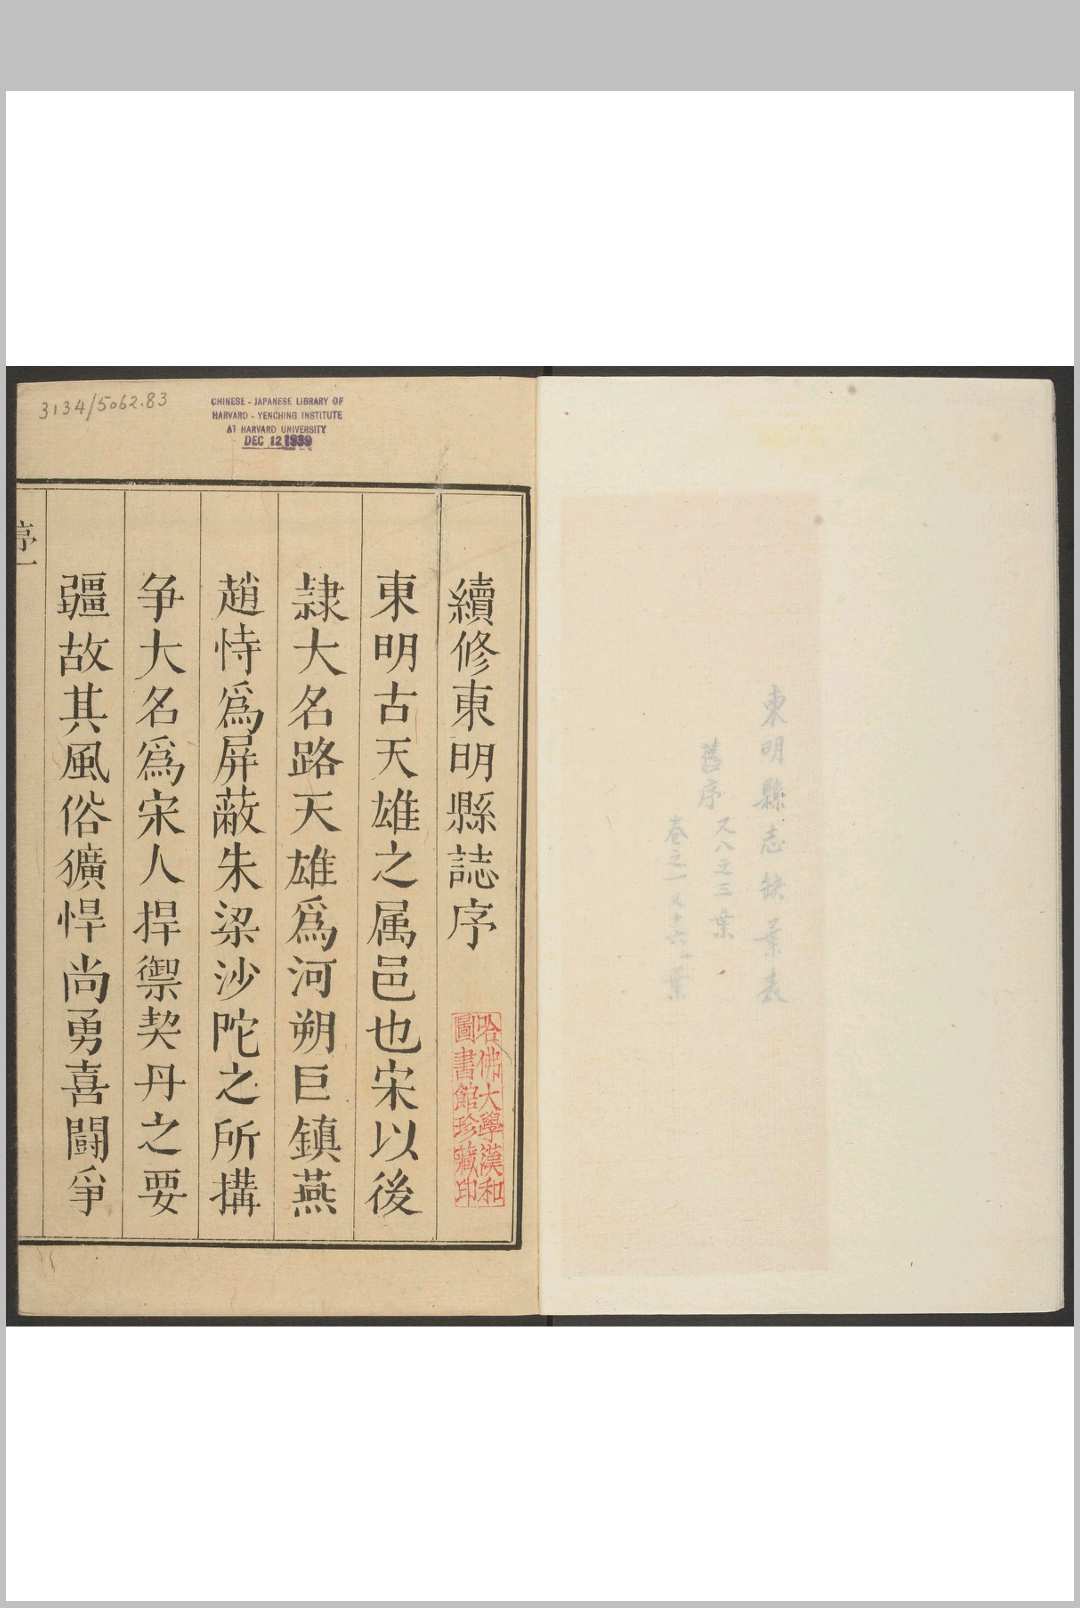 東明縣志缺葉表
舊序 又八之三葉
卷之一 又十六葉
3134/5062.83
CHINESE - JAPANESE LIBRARY OF
HARVARD - YENCHING INSTITUTE
AT HARVARD UNIVERSITY
DEC 12 1939
續修東明縣誌序
哈佛大學漢和
圖書館珍藏印
東明古天雄之属邑也宋以後
隷大名路天雄爲河朔巨鎮燕
趙恃爲屏蔽朱梁沙陀之所搆
争大名爲宋人捍禦契丹之要
疆故其風俗獷悍尚勇喜鬪爭
序一